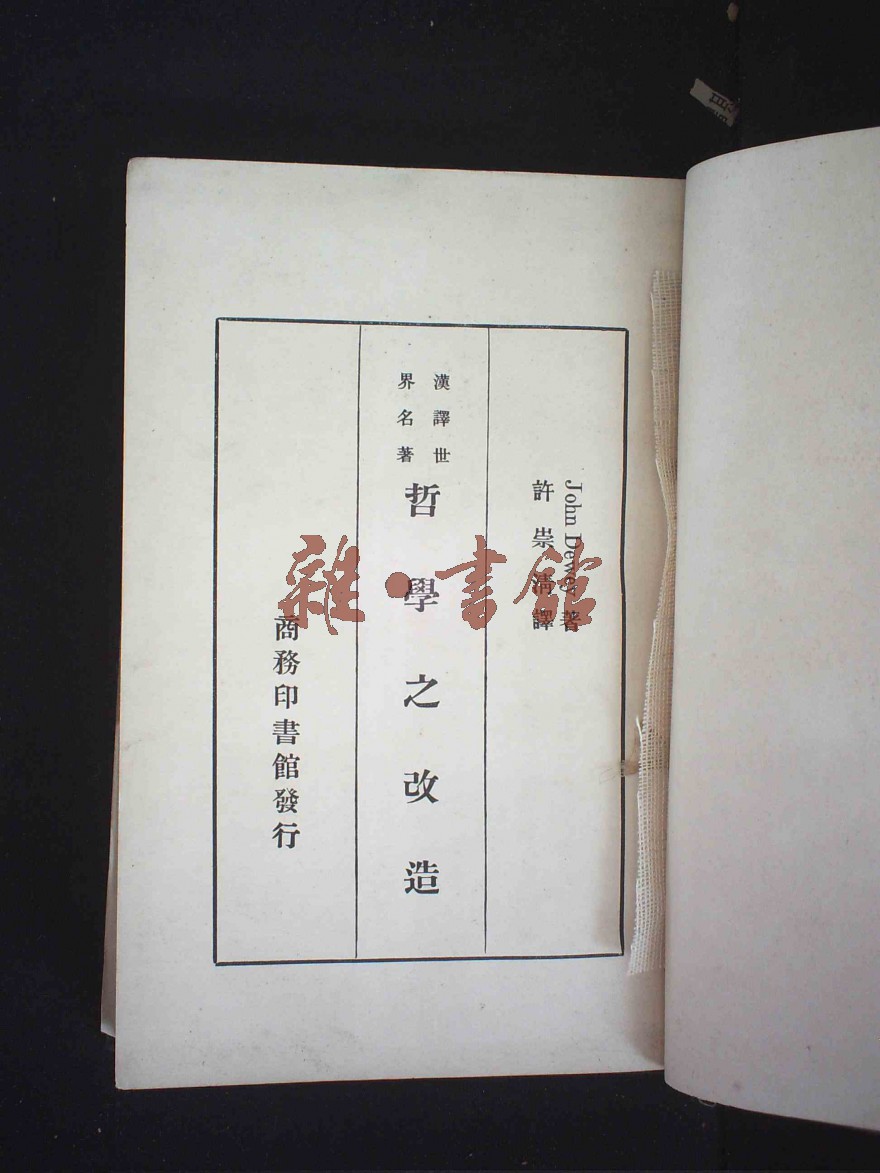 John Dewey 著
許崇清譯
漢譯世
界名著
哲學之改造
商務印書館發行
雜·書館